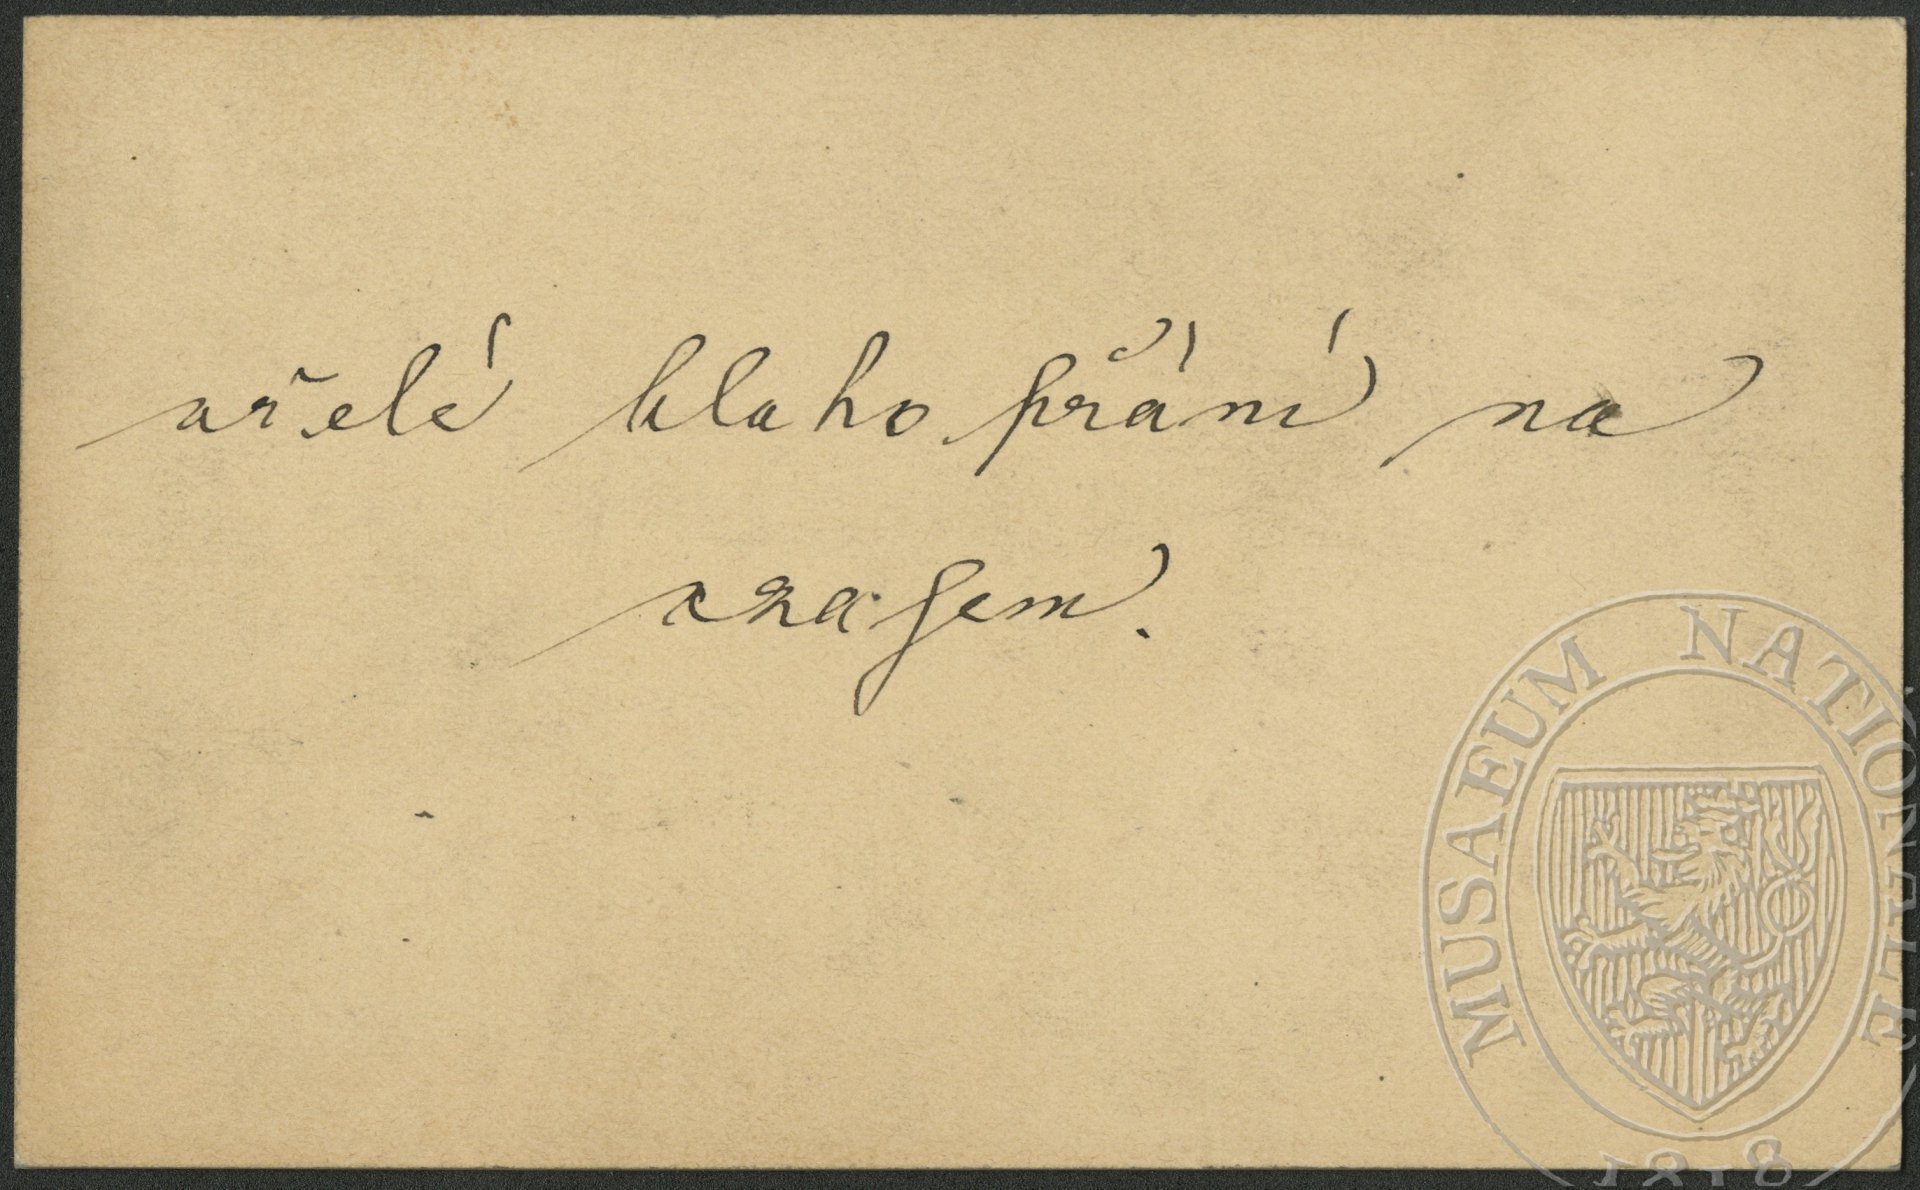 vřelé blahopřání na
vzajem.
MUSAEUM NATIONALE
1818